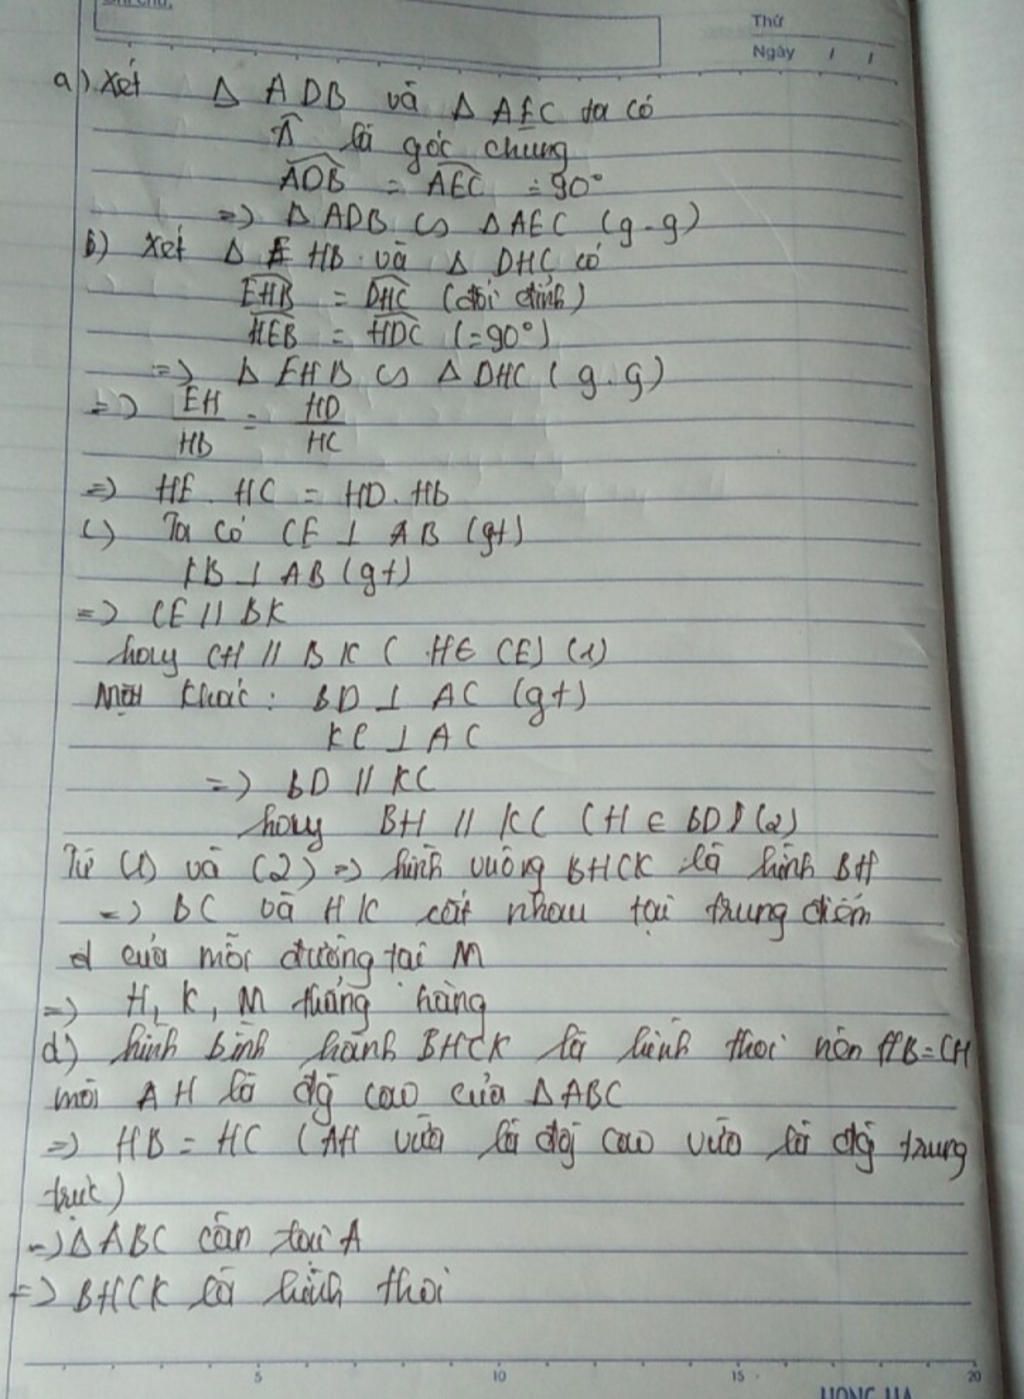 Thứ
Ngày / /
a) Xét Δ ADB và Δ AEC ta có
Â là góc chung
ADB = AEC = 90°
=> Δ ADB ∽ Δ AEC (g-g)
b) Xét Δ EHB và Δ DHC có
EHB = DHC (đối đỉnh)
HEB = HDC (=90°)
=> Δ EHB ∽ Δ DHC (g.g)
=> EH/HB = HD/HC
=> HE . HC = HD. HB
c) Ta có CE ⊥ AB (gt)
KB ⊥ AB (gt)
=> CE // BK
hay CH // BK ( H∈ CE) (1)
Mặt khác : BD ⊥ AC (gt)
KC ⊥ AC
=> BD // KC
hay BH // KC (H ∈ BD) (2)
Từ (1) và (2) => hình vuông BHCK là hình BH
=> BC và HK cắt nhau tại trung điểm
của mỗi đường tại M
=> H, K, M thẳng hàng
d) hình bình hành BHCK là hình thoi nên HB=CH
mà AH là đg cao của ΔABC
=> HB = HC (AH vừa là đg cao vừa là đg trung
trực)
=> ΔABC cân tại A
=> BHCK là hình thoi
5 10 15 20
HONG HA